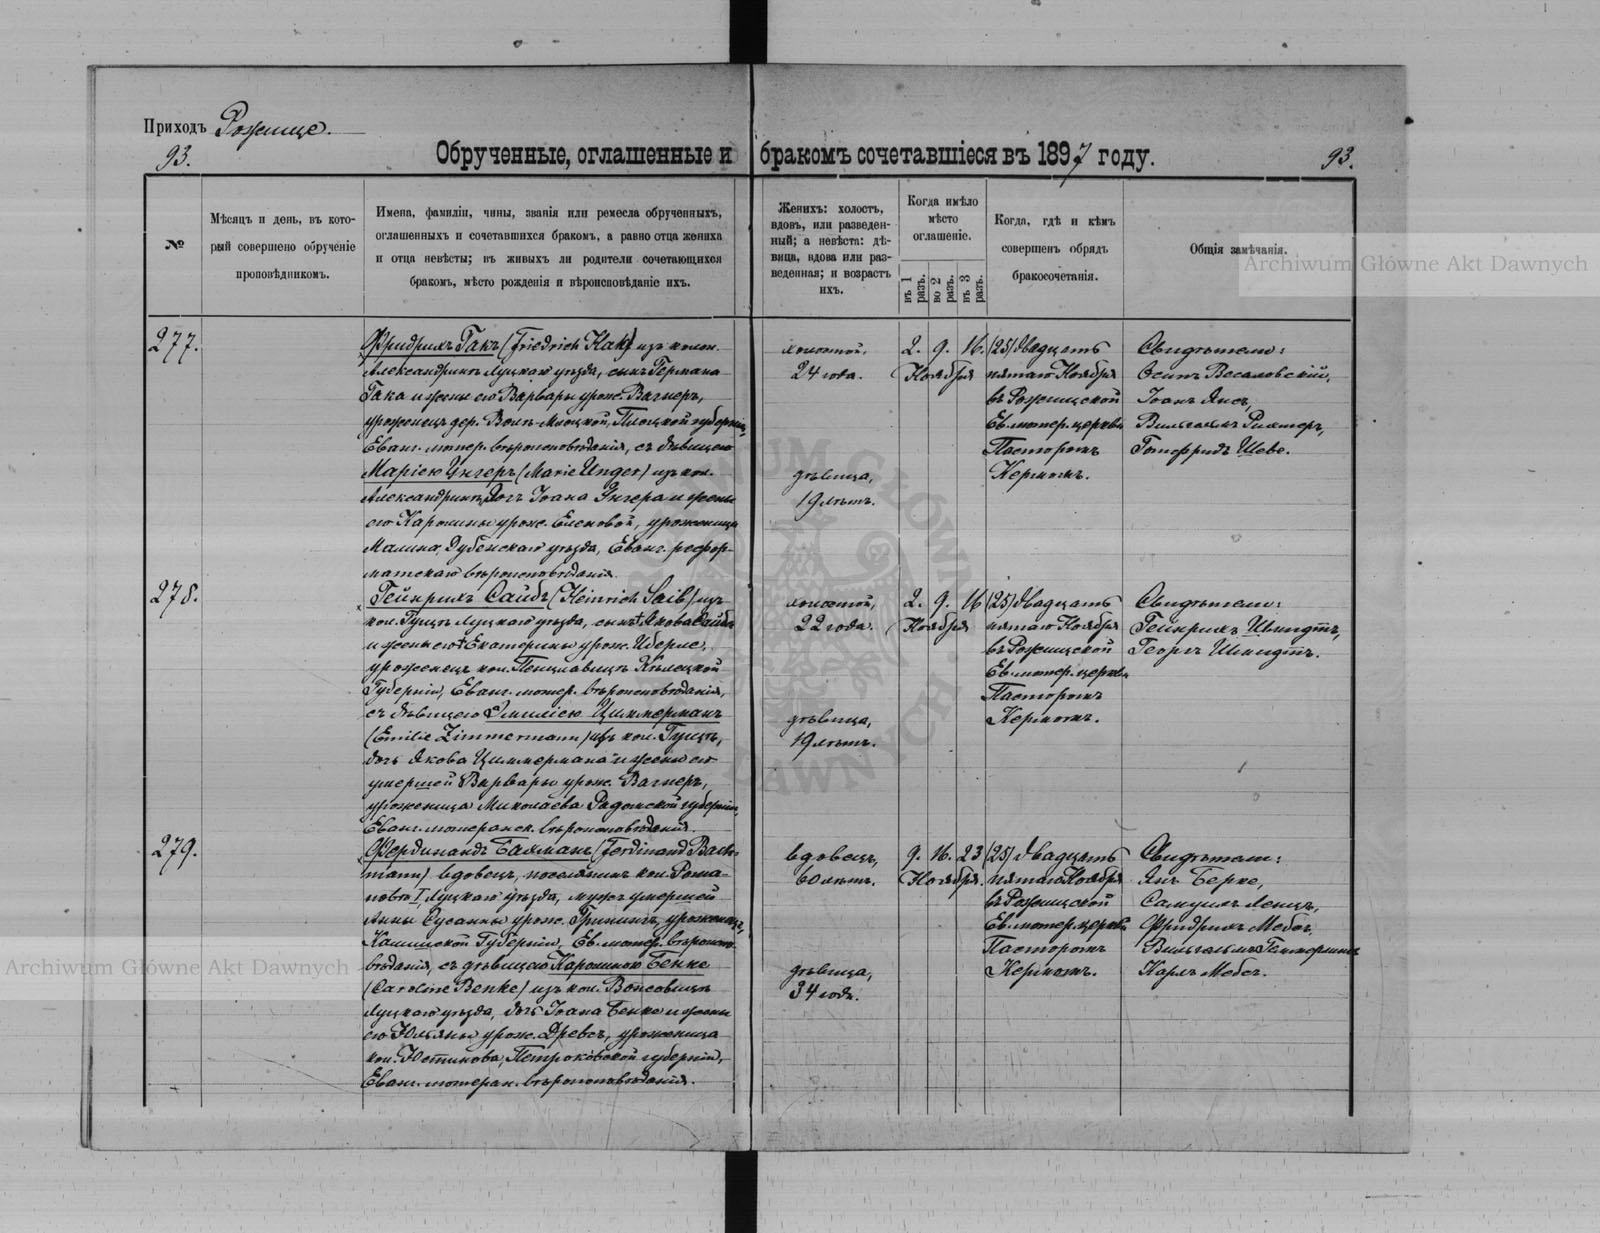 Приходъ Рожище.
93.
Обрученные, оглашенные и бракомъ сочетавшіеся въ 1897 году.
93.
№
Мѣсяцъ и день, въ кото-
рый совершено обрученіе
проповѣдникомъ.
Имена, фамиліи, чины, званія или ремесла обрученныхъ,
оглашенныхъ и сочетавшихся бракомъ, а равно отца жениха
и отца невѣсты; въ живыхъ ли родители сочетающихся
бракомъ, мѣсто рожденія и вѣроисповѣданіе ихъ.
Женихъ: холостъ,
вдовъ, или разведен-
ный; а невѣста: дѣ-
вица, вдова или раз-
веденная; и возрастъ
ихъ.
Когда имѣло
мѣсто
оглашеніе.
въ 1 разъ.
во 2 разъ.
въ 3 разъ.
Когда, гдѣ и кѣмъ
совершенъ обрядъ
бракосочетанія.
Общія замѣчанія.
Archiwum Główne Akt Dawnych
277.
Фридрихъ Гакъ (Friedrich Hak) изъ колон.
Александринъ Луцкаго уѣзда, сынъ Германа
Гака и жены его Варвары урож. Вагнеръ,
уроженецъ дер. Плоцкой губерніи,
Еванг. лютер. вѣроисповѣданія, съ дѣвицею
Маріею Унгеръ (Marie Unger) изъ кол.
Александринъ, дочь Іоана Унгера и жены
его Каролины урож. уроженица
Малина, Дубенскаго уѣзда, Еванг. рефор-
матскаго вѣроисповѣданія.
холостой,
24 года.
дѣвица,
19 лѣтъ.
2. 9. 16.
Ноября
(25) двадцать
пятаго Ноября
въ Рожищской
Ев. лютер. церкви
Пасторомъ
Кермомъ.
Свидѣтели:
Осипъ Весоловскій,
Іоанъ Янсъ,
Вильгельмъ Рихтеръ,
Готфридъ Шеве.
278.
Гейнрихъ Сайбъ (Heinrich Saib) изъ
кол. Гущъ Луцкаго уѣзда, сынъ † Якова Сайба
и жены его † Екатерины урож. Иберле,
уроженецъ кол. Кѣлецкой
Губерніи, Еванг. лютер. вѣроисповѣданія,
съ дѣвицею Эмиліею Циммерманъ
(Emilie Zimmermann) изъ кол. Гущъ,
дочь Якова Циммермана и жены его
умершей Варвары урож. Вагнеръ,
уроженица Миколаева Радомской губерніи,
Еванг. лютеранск. вѣроисповѣданія.
холостой,
22 года.
дѣвица,
19 лѣтъ.
2. 9. 16
Ноября
(25) двадцать
пятаго Ноября
въ Рожищской
Ев. лютер. церкви
Пасторомъ
Кермомъ.
Свидѣтели:
Гейнрихъ Шмидтъ,
Георгъ Шмидтъ.
279.
Фердинандъ Бахманъ (Ferdinand Bach-
mann) вдовецъ, поселянинъ кол. Рома-
новъ I, Луцкаго уѣзда, мужъ умершей
Анны Сусанны урож. уроженецъ,
Калишской Губерніи, Ев. лютер. вѣроиспо-
вѣданія, съ дѣвицею Каролиною Бенке
(Caroline Benke) изъ кол.
Луцкаго уѣзда, дочь Іоана Бенке и жены
его Юльяны урож. Древсъ, уроженица
кол. Юстинова, Петроковской губерніи,
Еванг. лютеран. вѣроисповѣданія.
вдовецъ,
60 лѣтъ.
дѣвица,
34 года.
9. 16. 23
Ноября.
(25) двадцать
пятаго Ноября
въ Рожищской
Ев. лютер. церкви
Пасторомъ
Кермомъ.
Свидѣтели:
Янъ Берке,
Самуилъ Ленцъ,
Фридрихъ Мебсъ,
Вильгельмъ
Карлъ Мебсъ.
Archiwum Główne Akt Dawnych